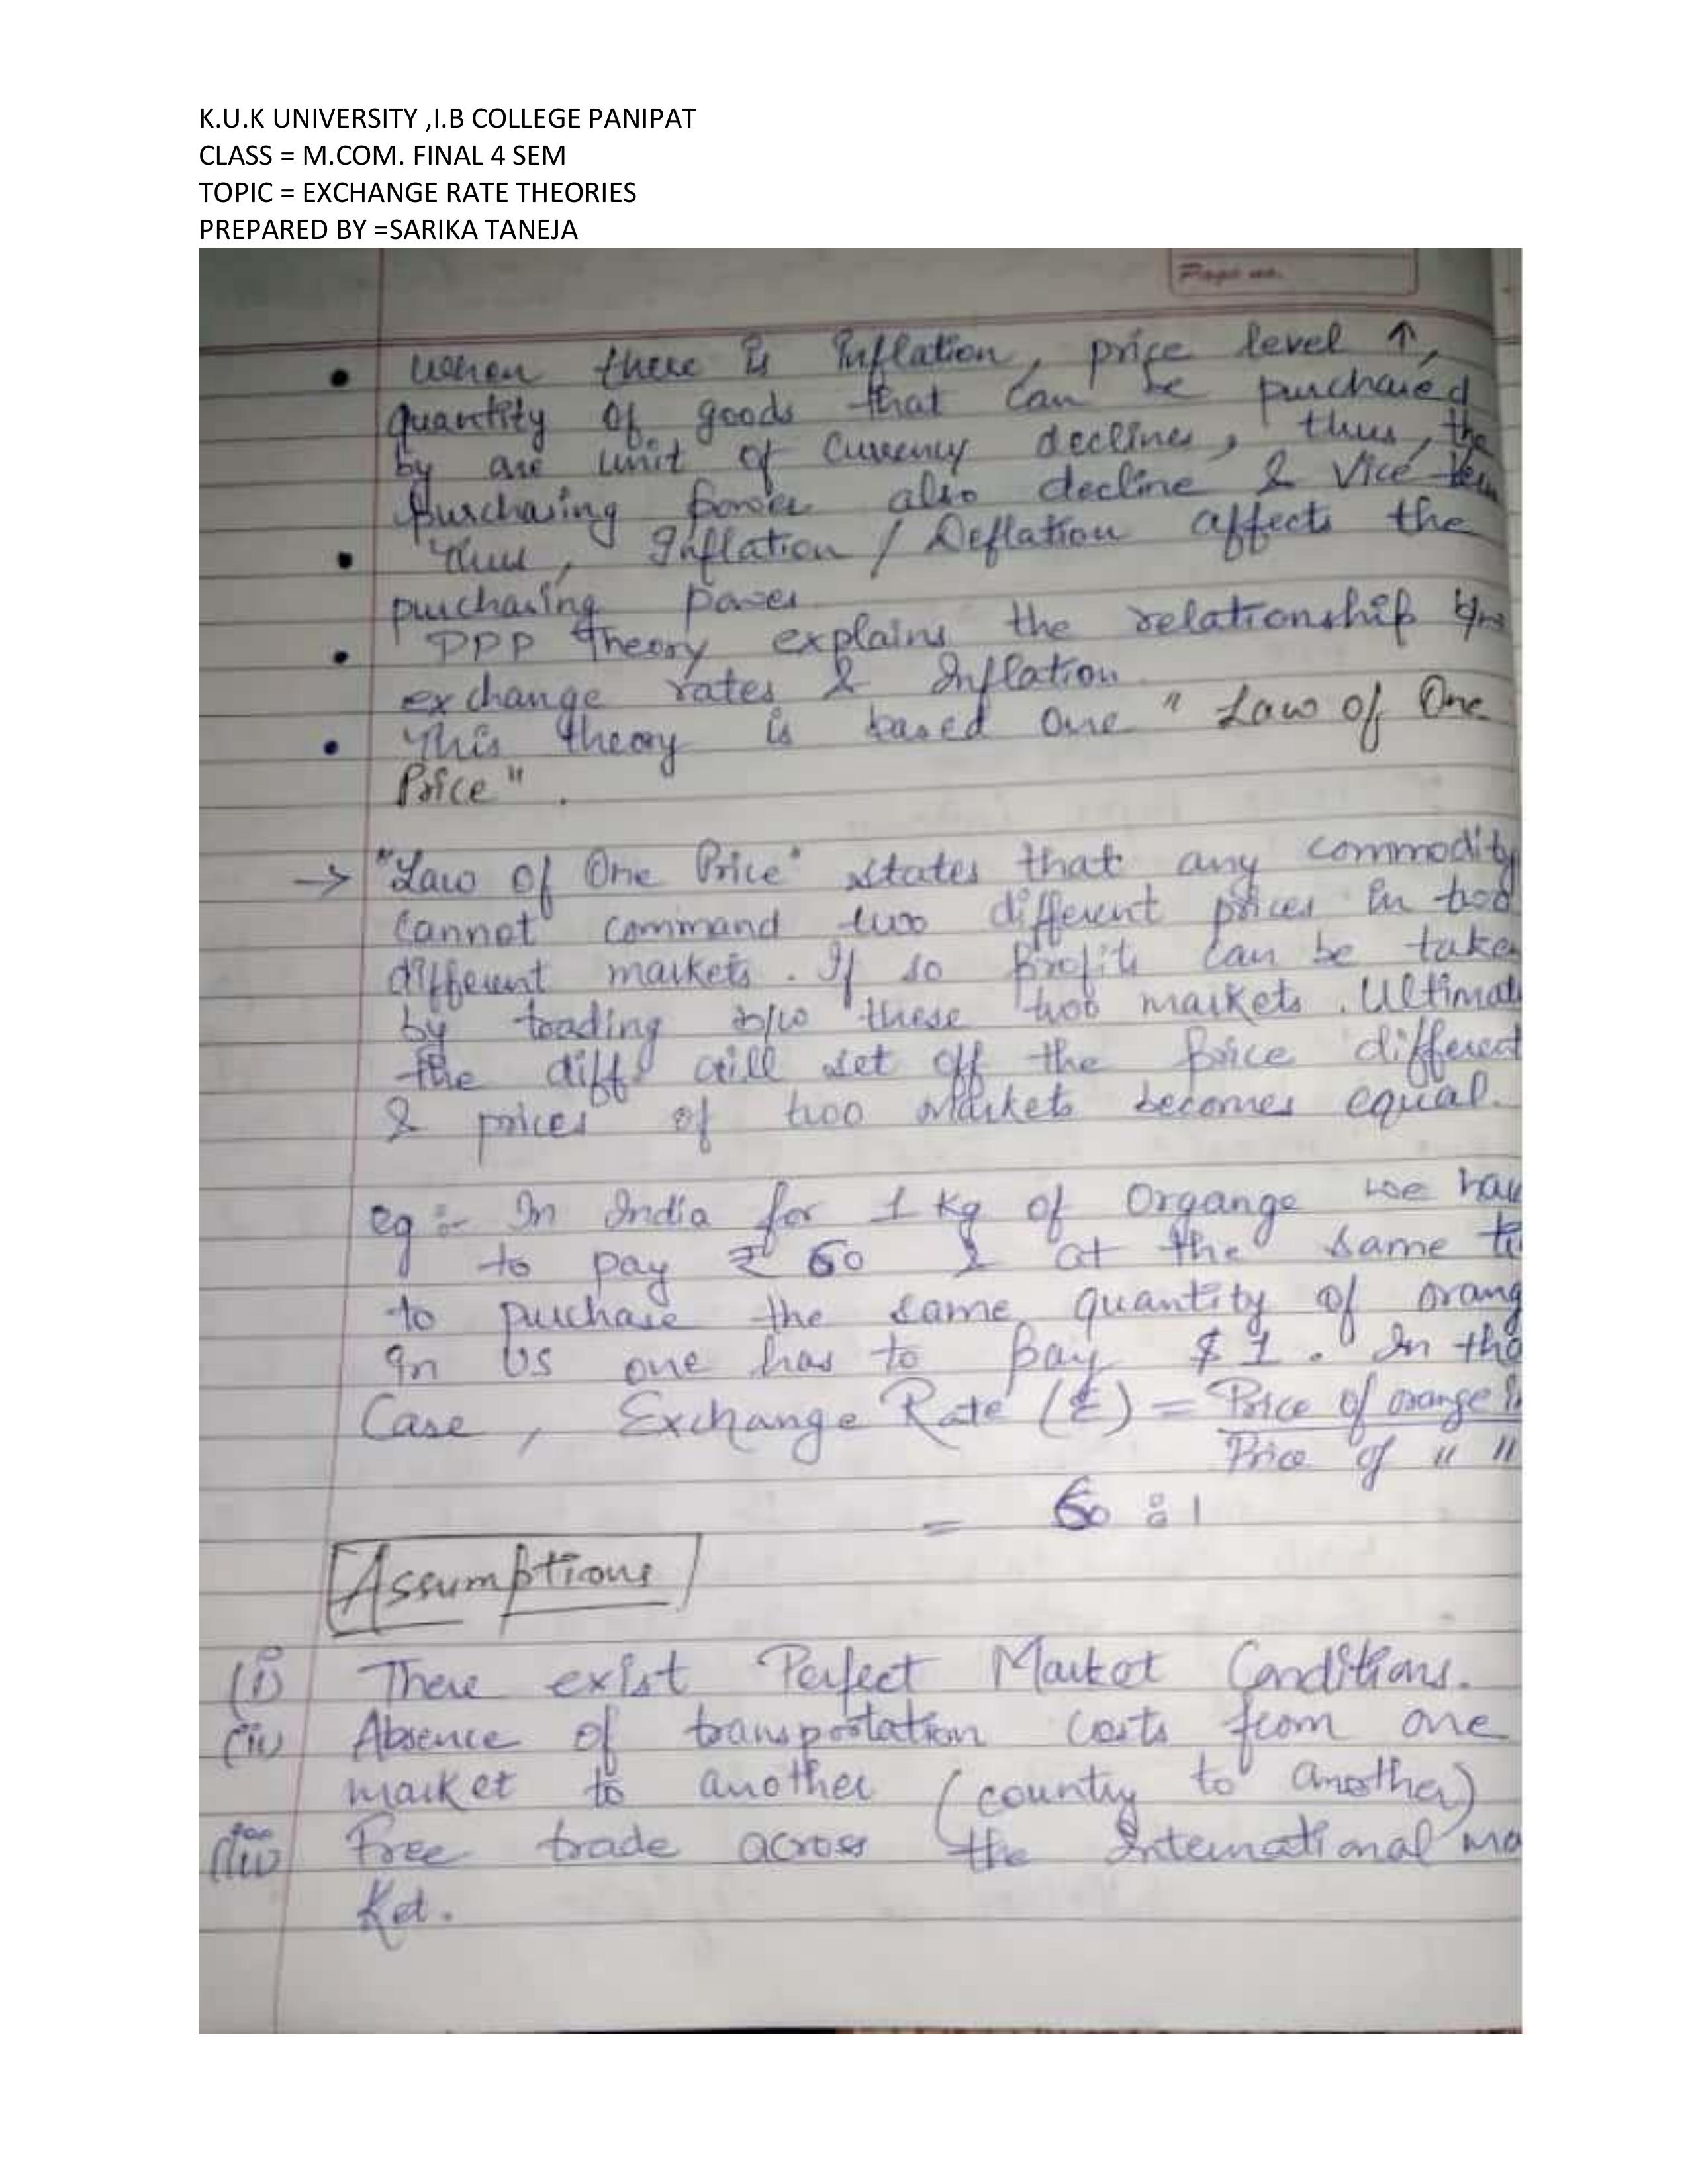 K.U.K UNIVERSITY ,I.B COLLEGE PANIPAT
CLASS = M.COM. FINAL 4 SEM
TOPIC = EXCHANGE RATE THEORIES
PREPARED BY =SARIKA TANEJA
Page no.
• When there is Inflation, price level ↑,
quantity of goods that can be purchased
by one unit of Currency declines, thus, the
purchasing power also decline & Vice
• Thus, Inflation / Deflation affects the
purchasing power
• PPP Theory explains the relationship b/w
exchange rates & Inflation
• This theory is based one " Law of One
Price".
→ "Law of One Price" states that any commodity
cannot command two different prices in two
different markets. If so profits can be take
by trading b/w these two markets. Ultimat
the diff will set off the price different
& prices of two markets becomes equal.
eg :- In India for 1 Kg of Organge we hav
to pay ₹ 60 & at the same ti
to purchase the same quantity of orang
In US one has to pay $ 1. In tha
Case, Exchange Rate (₹) = Price of orange in
Price of " "
= 60 : 1
Assumptions
(i) There exist Perfect Market Conditions.
(ii) Absence of transportation costs from one
market to another (country to another)
(iii) Free trade across the International ma
ket.